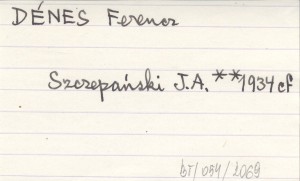 DÉNES Ferenc
Szczepański J.A. **1934 cf
bT/054/2069